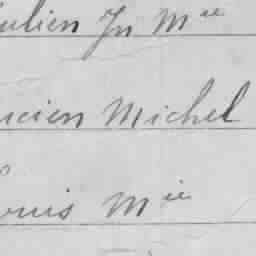 ulien Jn Mce
ucien Michel
ouis Mie